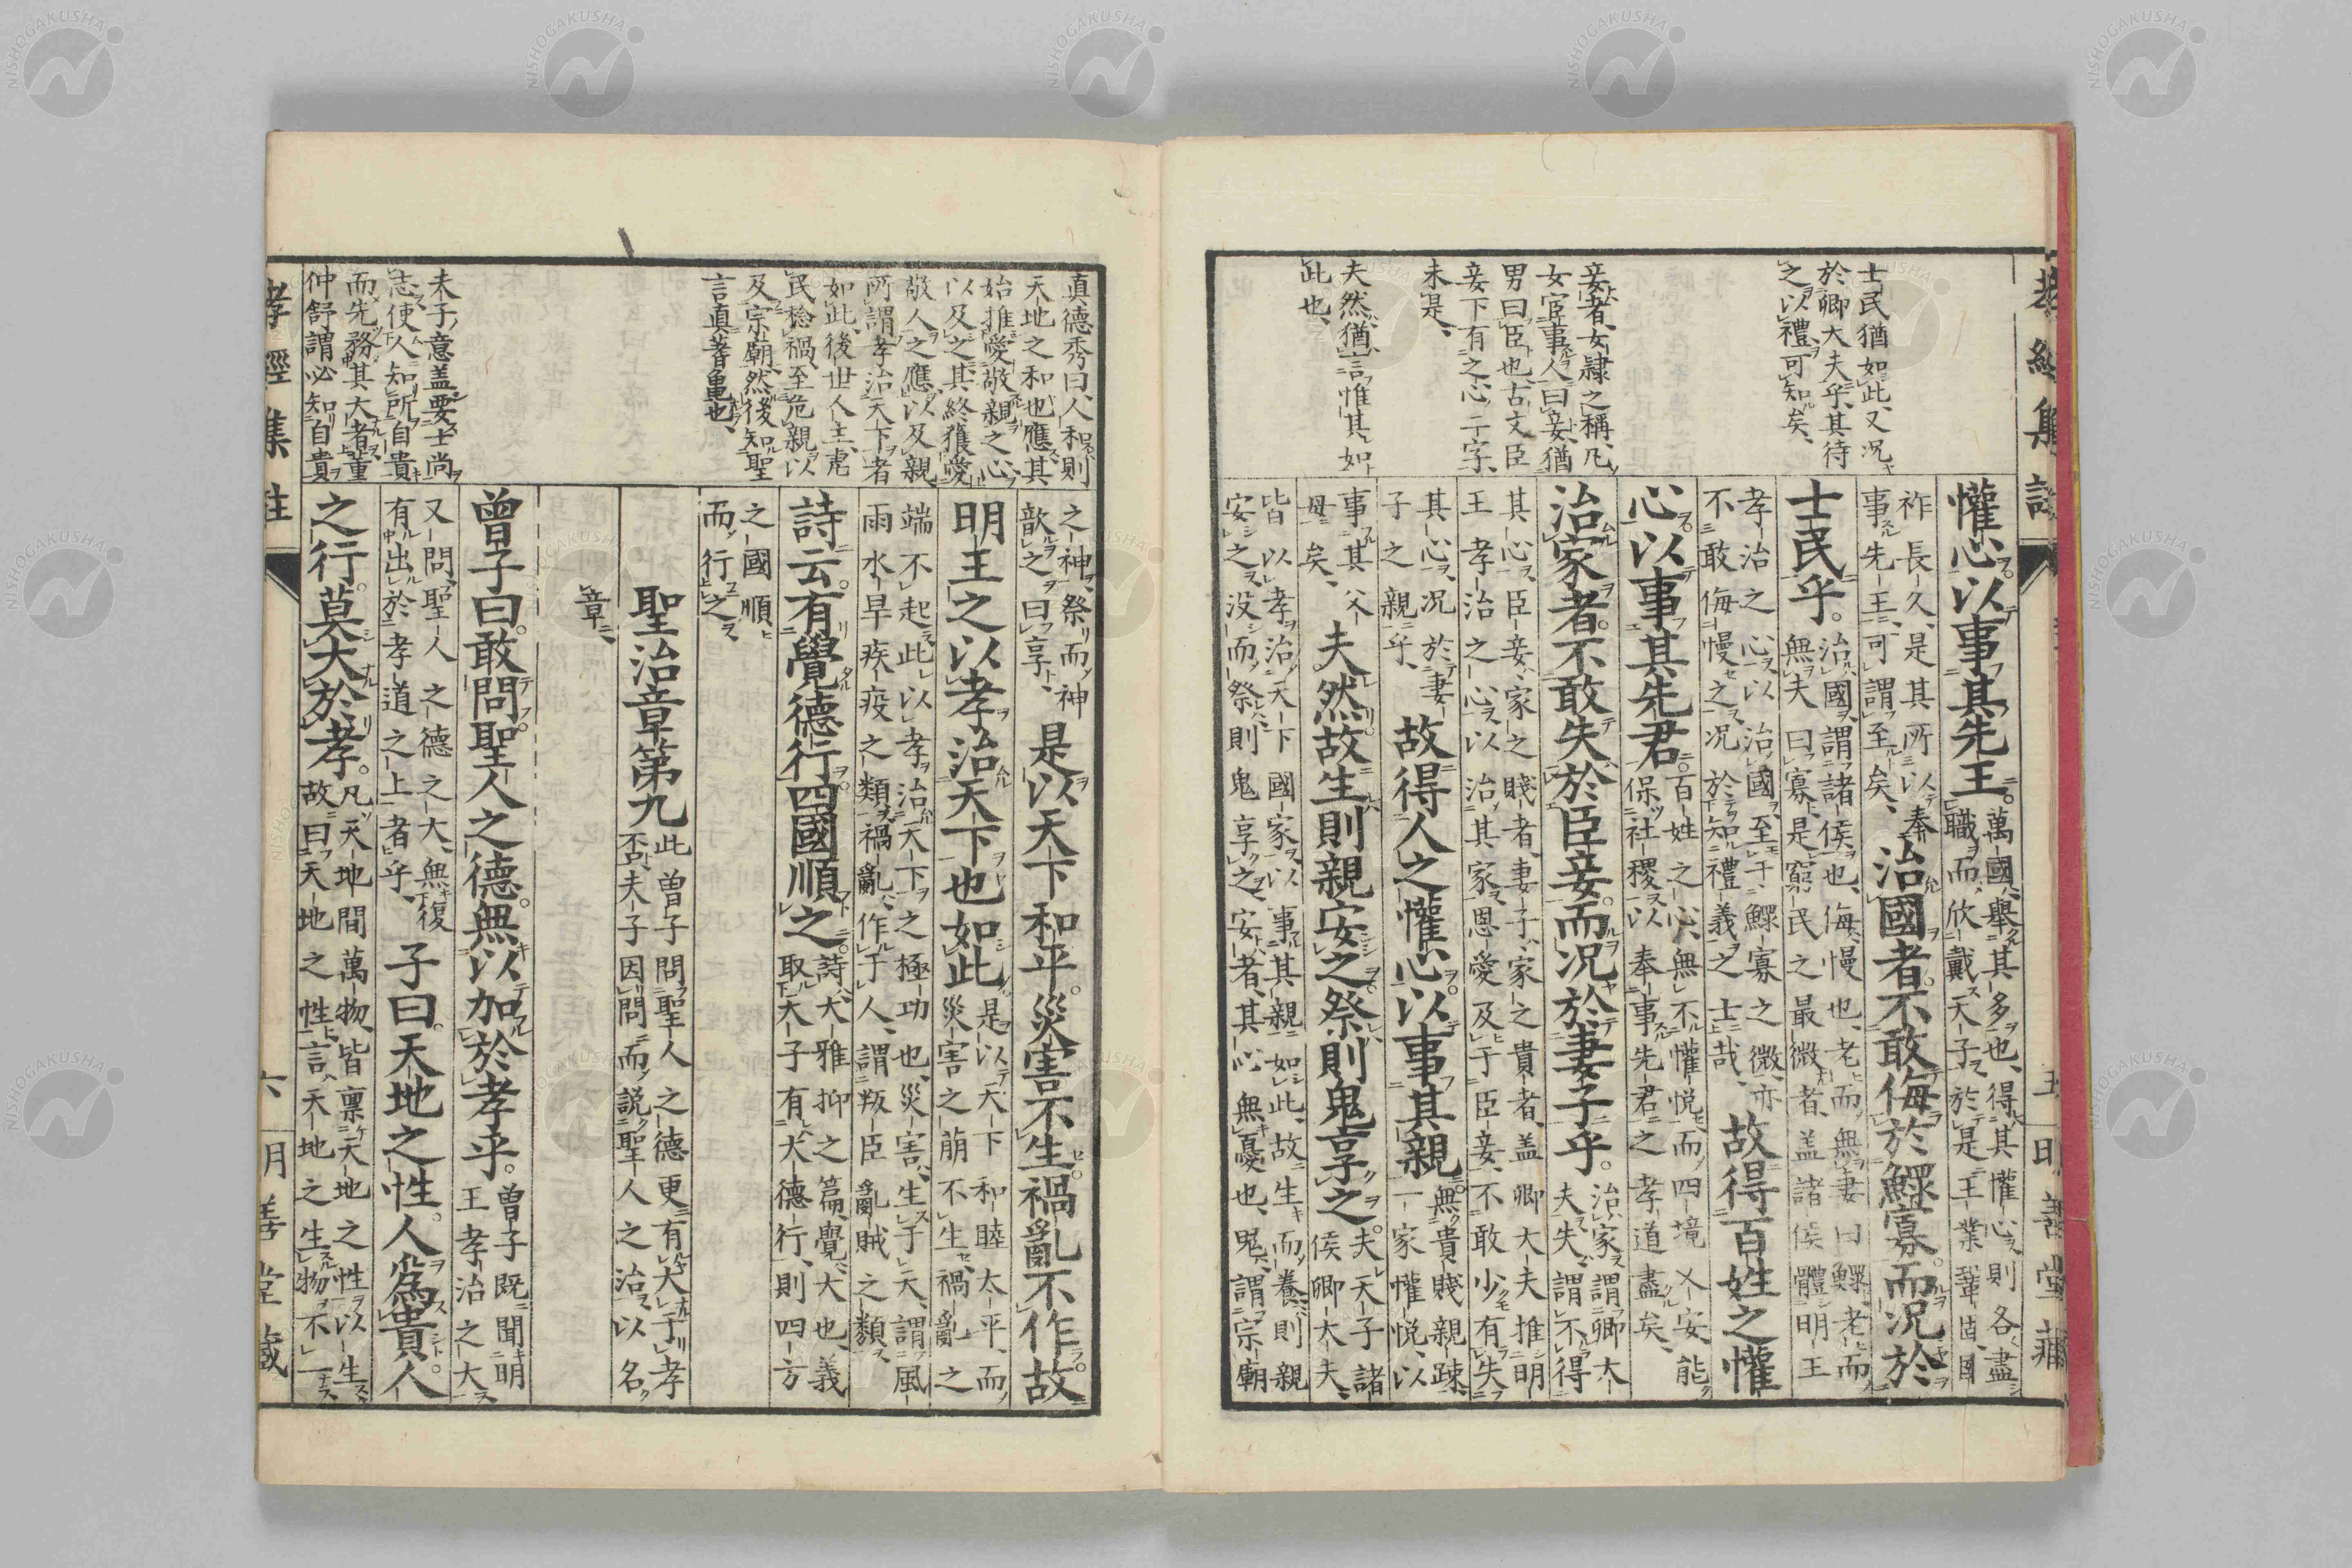 孝經集註
五
明善堂藏
士民猶如此又况
於卿大夫乎其待
之以禮可知矣
妾者女隷之稱凡
女宦事人曰妾猶
男曰臣也古文臣
妾下有之心二字
未是
夫然猶言惟其如
此也
懽心以事其先王。
萬國舉其多也得其懽心則各盡
職而欣戴天子於是王業鞏固國
祚長久是其所以奉
事先王可謂至矣
治國者。不敢侮於鰥寡。而况於
士民乎。
治國謂諸侯也侮慢也老而無妻曰鰥老而
無夫曰寡是窮民之最微者盖諸侯體明王
孝治之心以治國至于鰥寡之微亦
不敢侮慢之况於知禮義之士哉
故得百姓之懽
心以事其先君
百姓之心無不懽悅而四境乂安能
保社稷以奉事先君之孝道盡矣
治家者。不敢失於臣妾。而况於妻子乎。
治家謂卿大
夫失謂不得
其心臣妾家之賤者妻子家之貴者盖卿大夫推明
王孝治之心以治其家恩愛及于臣妾不敢少有失
其心况於妻
子之親乎
故得人之懽心以事其親
無貴賤親疎
一家懽悅以
事其父
母矣
夫然。故生則親安之。祭則鬼享之。
夫天子諸
侯卿大夫
皆以孝治天下國家以事其親如此故生而養則親
安之沒而祭則鬼享之安者其心無憂也鬼謂宗廟
真德秀曰人和則
天地之和也應其
始推愛敬親之心
以及之其終獲愛
敬人之應以及親
所謂孝治天下者
如此後世人主虐
民稔禍至危親以
及宗廟然後知聖
言真蓍龜也
朱子意盖要士尚
志使人知所自貴
而先務其大者董
仲舒謂必知自貴
之神祭而神
歆之曰享
是以天下和平。災害不生。禍亂不作。故
明王之以孝治天下也如此。
是以天下和睦太平而
災害之萌不生禍亂之
端不起此以孝治天下之極功也災害生于天謂風
雨水旱疾疫之類禍亂作于人謂叛臣亂賊之類
詩云。有覺德行。四國順之。
詩大雅抑之篇覺大也義
取天子有大德行則四方
之國順
而行之
聖治章第九
此曾子問聖人之德更有大于孝
否夫子因問而說聖人之治以名
章
曾子曰。敢問聖人之德。無以加於孝乎。
曾子既聞明
王孝治之大
又問聖人之德之大無復
有出於孝道之上者乎
子曰。天地之性。人爲貴。人
之行。莫大於孝。
凡天地間萬物皆禀天地之性以生
故曰天地之性言天地之生物不一
孝經集註
六
明善堂藏